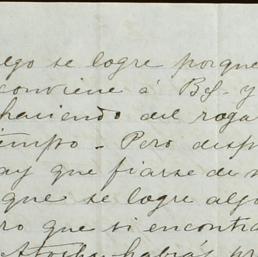 ego se logre porque
conviene á Bs. y
haciendo del roga
iempo - Pero desp
ay que fiarse de
que se logre algo
ro que si encontra
Atocha habías pr